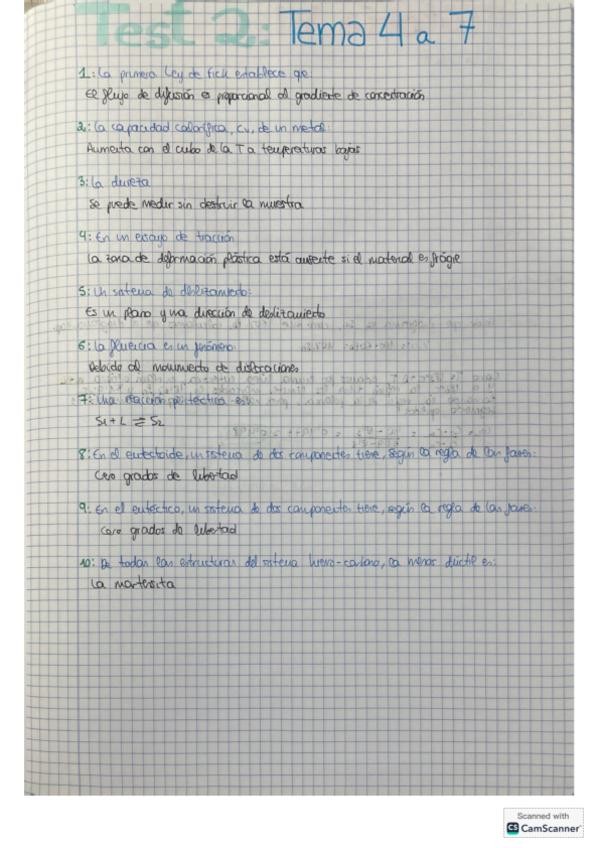 Test 2: Tema 4 a 7
1: La primera Ley de Fick establece qe:
El flujo de difusión es proporcional al gradiente de concentración
2: La capacidad calorífica, cv, de un metal:
Aumenta con el cubo de la T a temperaturas bajas
3: La dureza
Se puede medir sin destruir la muestra
4: En un ensayo de tracción
La zona de deformación plástica está ausente si el material es frágil
5: Un sistema de deslizamiento:
Es un plano y una dirección de deslizamiento
6: La fluencia es un fenómeno:
Debido al movimiento de dislocaciones
7: Una reacción peritéctica es:
S1 + L ⇌ S2
8: En el eutectoide, un sistema de dos componentes tiene, según la regla de las fases:
Cero grados de libertad
9: En el eutéctico, un sistema de dos componentes tiene, según la regla de las fases:
Cero grados de libertad
10: De todas las estructuras del sistema hierro-carbono, la menos dúctil es:
La martensita
Scanned with
CS CamScanner